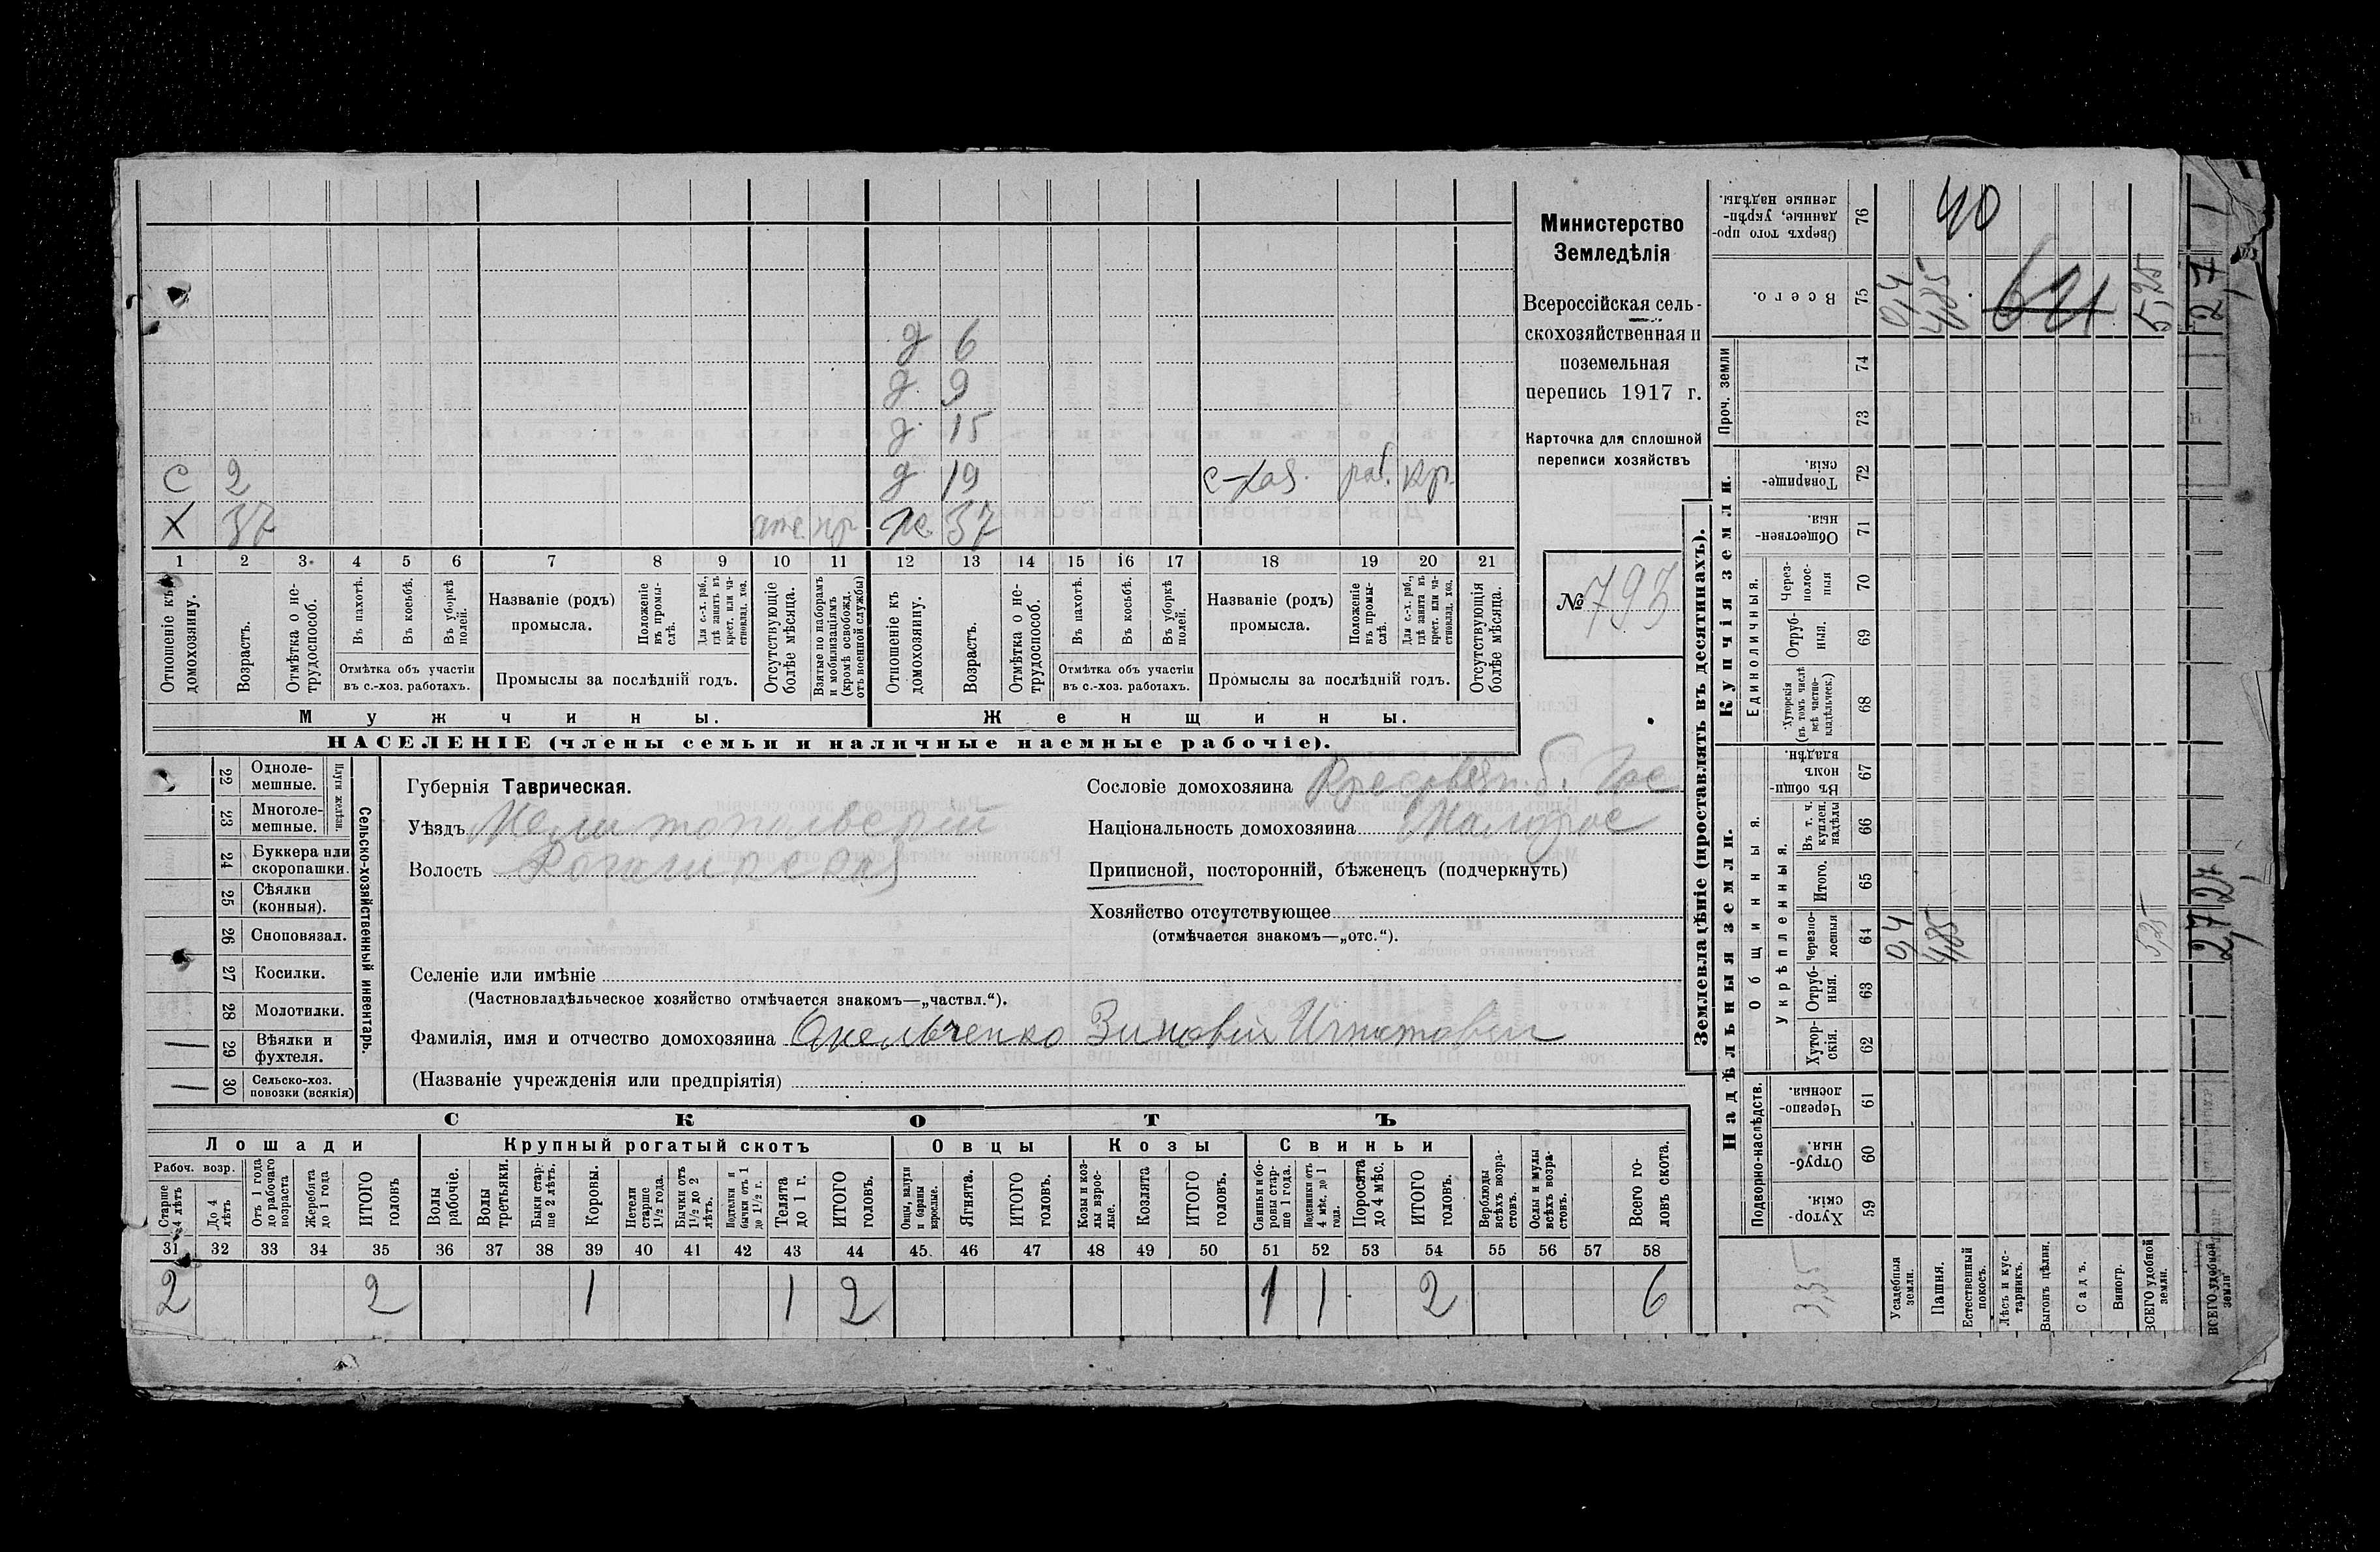 д 6
д. 9
д. 15
С 2 д 19 с-хоз. раб. кр.
Х 37 отс. пр ж. 37
1 2 3 4 5 6 7 8 9 10 11 12 13 14 15 16 17 18 19 20 21
Отношеніе къ домохозяину.
Возрастъ.
Отмѣтка о не-трудоспособ.
Въ пахотѣ.
Въ косьбѣ.
Въ уборкѣ полей.
Отмѣтка объ участіи
въ с.-хоз. работахъ.
Названіе (родъ)
промысла.
Положеніе въ промы-слѣ.
Для с.-х. раб., гдѣ занятъ въ крест. или ча-стновлад. хоз.
Промыслы за послѣдній годъ.
Отсутствующіе болѣе мѣсяца.
Взятые по наборамъ и мобилизаціямъ (кромѣ освобожд. отъ военной службы)
Отношеніе къ домохозяину.
Возрастъ.
Отмѣтка о не-трудоспособ.
Въ пахотѣ.
Въ косьбѣ.
Въ уборкѣ полей.
Отмѣтка объ участіи
въ с.-хоз. работахъ.
Названіе (родъ)
промысла.
Положеніе въ промы-слѣ.
Для с.-х. раб., гдѣ занята въ крест. или ча-стновлад. хоз.
Промыслы за послѣдній годъ.
Отсутствующія болѣе мѣсяца.
Мужчины. Женщины.
НАСЕЛЕНІЕ (члены семьи и наличные наемные рабочіе).
Министерство
Земледѣлія
Всероссійская сель-
скохозяйственная и
поземельная
перепись 1917 г.
Карточка для сплошной
переписи хозяйствъ
№ 793
22 Одноле-мешные.
23 Многоле-мешные.
Плуги желѣзн.
24 Буккера или скоропашки.
25 Сѣялки (конныя).
26 Сноповязал.
27 Косилки.
28 Молотилки.
1 29 Вѣялки и фухтеля.
1 30 Сельско-хоз. повозки (всякія)
Сельско-хозяйственный инвентарь.
Губернія Таврическая.
Уѣздъ Мелитопольскій
Волость Рогачикская
Сословіе домохозяина Крестьян. б. Гос
Національность домохозяина Малорос
Приписной, посторонній, бѣженецъ (подчеркнуть)
Хозяйство отсутствующее
(отмѣчается знакомъ—„отс.“).
Селеніе или имѣніе
(Частновладѣльческое хозяйство отмѣчается знакомъ—„частвл.“).
Фамилія, имя и отчество домохозяина Омельченко Зиновій Игнатовіч
(Названіе учрежденія или предпріятія)
СКОТЪ
Лошади Крупный рогатый скотъ Овцы Козы Свиньи
Рабоч. возр.
Старше 4 лѣтъ
До 4 лѣтъ
Отъ 1 года до рабочаго возраста
Жеребята до 1 года
ИТОГО головъ
Волы рабочіе.
Волы третьяки.
Быки стар-ше 2 лѣтъ.
Коровы.
Нетели старше 1½ года.
Бычки отъ 1½ до 2 лѣтъ.
Подтелки и бычки отъ 1 до 1½ г.
Телята до 1 г.
ИТОГО головъ.
Овцы, валухи и бараны взрослые.
Ягнята.
ИТОГО головъ.
Козы и коз-лы взрос-лые.
Козлята
ИТОГО головъ.
Свиньи и бо-ровы стар-ше 1 года.
Подсвинки отъ 4 мѣс. до 1 года.
Поросята до 4 мѣс.
ИТОГО головъ.
Верблюды всѣхъ возра-стовъ.
Ослы и мулы всѣхъ возра-стовъ.
Всего го-ловъ скота.
31 32 33 34 35 36 37 38 39 40 41 42 43 44 45 46 47 48 49 50 51 52 53 54 55 56 57 58
2 2 1 1 2 1 1 2 6
Землевладѣніе (проставлять въ десятинахъ).
Купчія земли.
Надѣльныя земли.
Сверхъ того про-данные, укрѣп-ленные надѣлы. 76 40
Всего. 75 0,4 4,85 5,25 2,7
Проч. земли 74 73
Товарище-скія. 72
Обществен-ныя. 71
Единоличныя.
Через-полос-ныя 70
Отруб-ныя. 69
Хуторскія (въ томъ числѣ всѣ частно-владѣльческ.) 68
Въ общин-номъ владѣн. 67
Общинныя
Укрѣпленныя.
Въ т. ч. куплен. надѣлы 66
Итого. 65
Черезпо-лосныя 64 0,4 4,85 5,25 2,7
Отруб-ныя. 63
Хутор-скія. 62
Подворно-наслѣдств.
Черезпо-лосныя. 61
Отруб-ныя. 60
Хутор-скія. 59
3,35
Усадебныя земли.
Пашня.
Естественный покосъ.
Лѣсъ и кус-тарникъ.
Выгонъ цѣлин.
Садъ.
Виногр.
ВСЕГО удобной земли.
ВСЕГО удобной земли